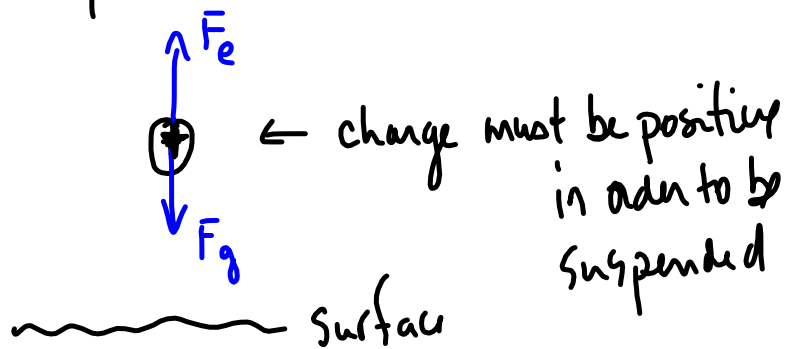 Fe
+
← charge must be positive
in order to be
suspended
Fg
surface